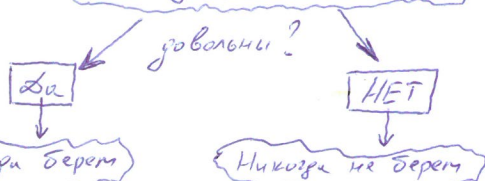 довольны?
Да
НЕТ
берет
Никогда не берет